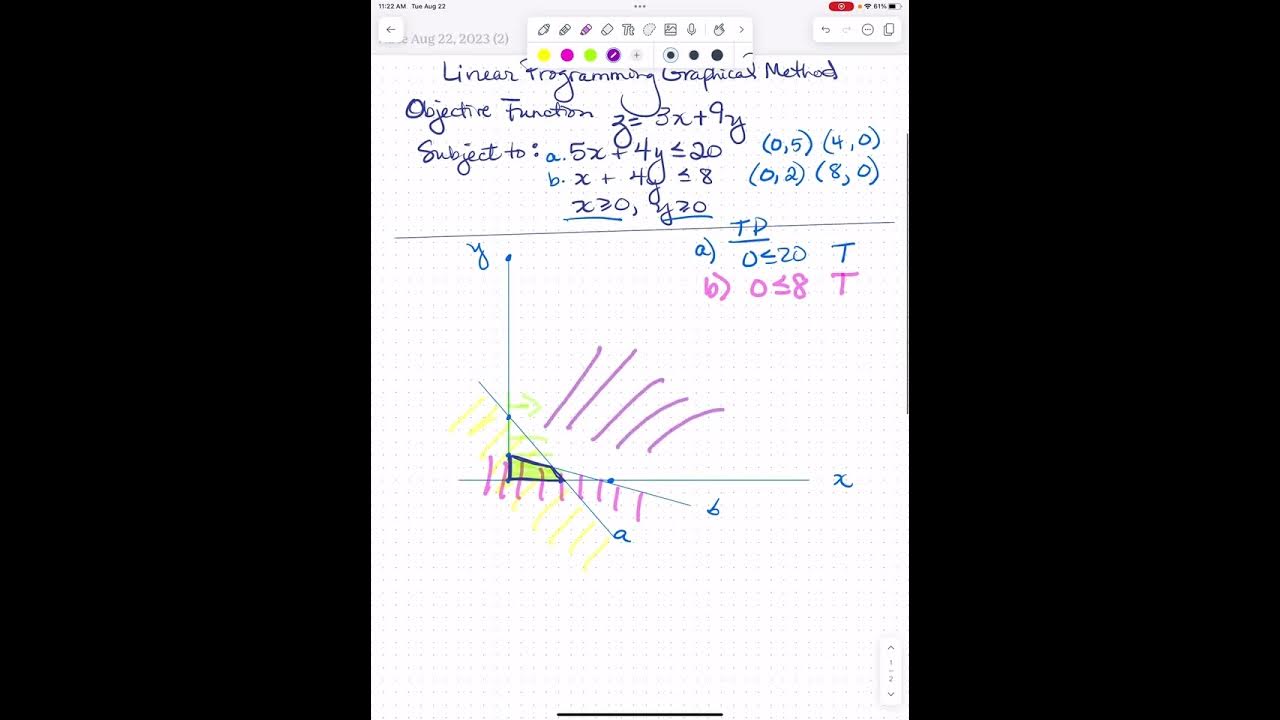 11:22 AM Tue Aug 22
61%
Aug 22, 2023 (2)
Linear Programming Graphical Method
Objective Function z = 3x+9y
Subject to: a. 5x + 4y ≤ 20 (0,5) (4,0)
b. x + 4y ≤ 8 (0,2) (8,0)
x ≥ 0, y ≥ 0
TP
a) 0 ≤ 20 T
b) 0 ≤ 8 T
y
x
b
a
1
2